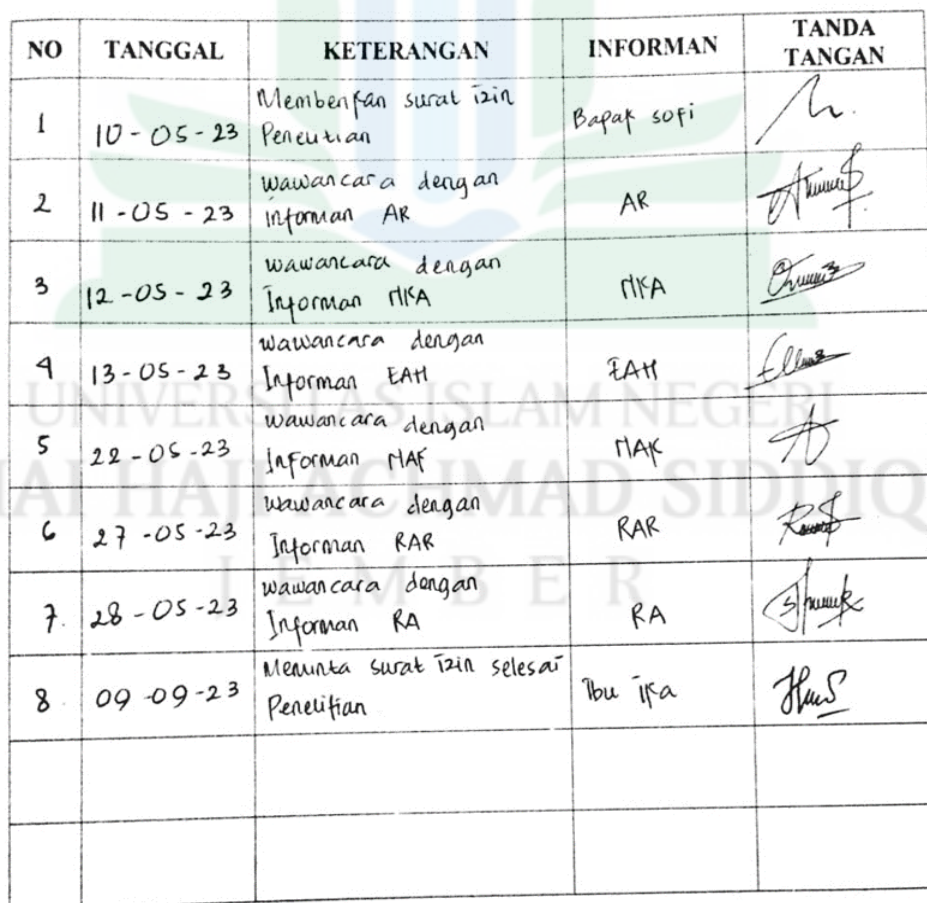 NO TANGGAL KETERANGAN INFORMAN TANDA TANGAN
1 10-05-23 Memberikan surat izin
Penelitian Bapak sofi
2 11-05-23 wawancara dengan
informan AR AR
3 12-05-23 wawancara dengan
Informan MKA MKA
4 13-05-23 wawancara dengan
Informan EAH EAH
5 22-05-23 wawancara dengan
Informan MAK MAK
6 27-05-23 wawancara dengan
Informan RAR RAR
7. 28-05-23 wawancara dengan
Informan RA RA
8. 09-09-23 Meminta surat izin selesai
Penelitian Ibu ika
UNIVERSITAS ISLAM NEGERI
HAJI ACHMAD SIDDIQ
JEMBER